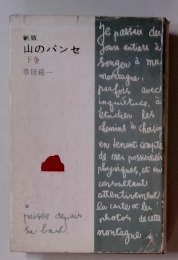 新版
山のパンセ
下巻
串田孫一
je passais des
jours entiers à
songer à ma
montagne,
parfois avec
inquiétude, à
étudier les
chemins à choisir
en tenant compte
de mes possibilités
physiques, et en
consultant
attentivement
la carte et les
photos de cette
montagne
prises depuis
sa base.